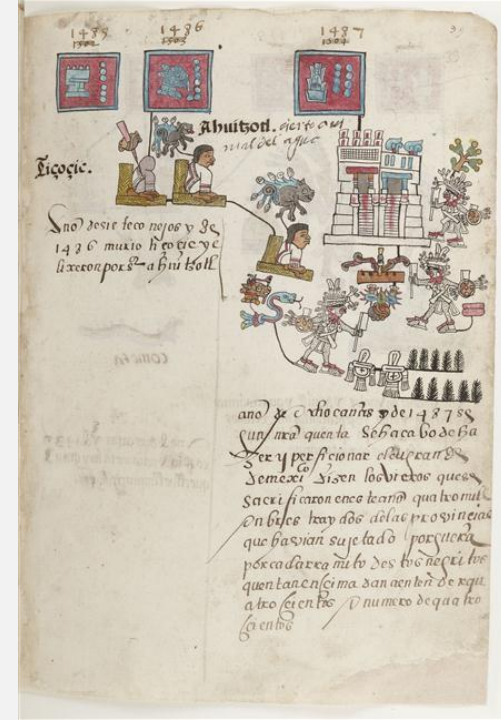 1485 1486 1487
1502 1503 1504
Ahuitzotl. çierto ani
mal del agua
Tiçoçic.
Año de siete conejos y de
1486 murio tiçoçic y e
lixeron por sr a ahuitzotl
año de ocho cañas y de 1487 se
gun nra quenta se hacabo de ha
zer y perficionar el cu grande
de mexico dizen los viejos que se
sacrificaron en este año quatro mil
onbres traydos de las provincias
que havian sujetado por guerra
por cada rramito destos negritos
encima dan a entender
atrocientos numero de quatro
cientos